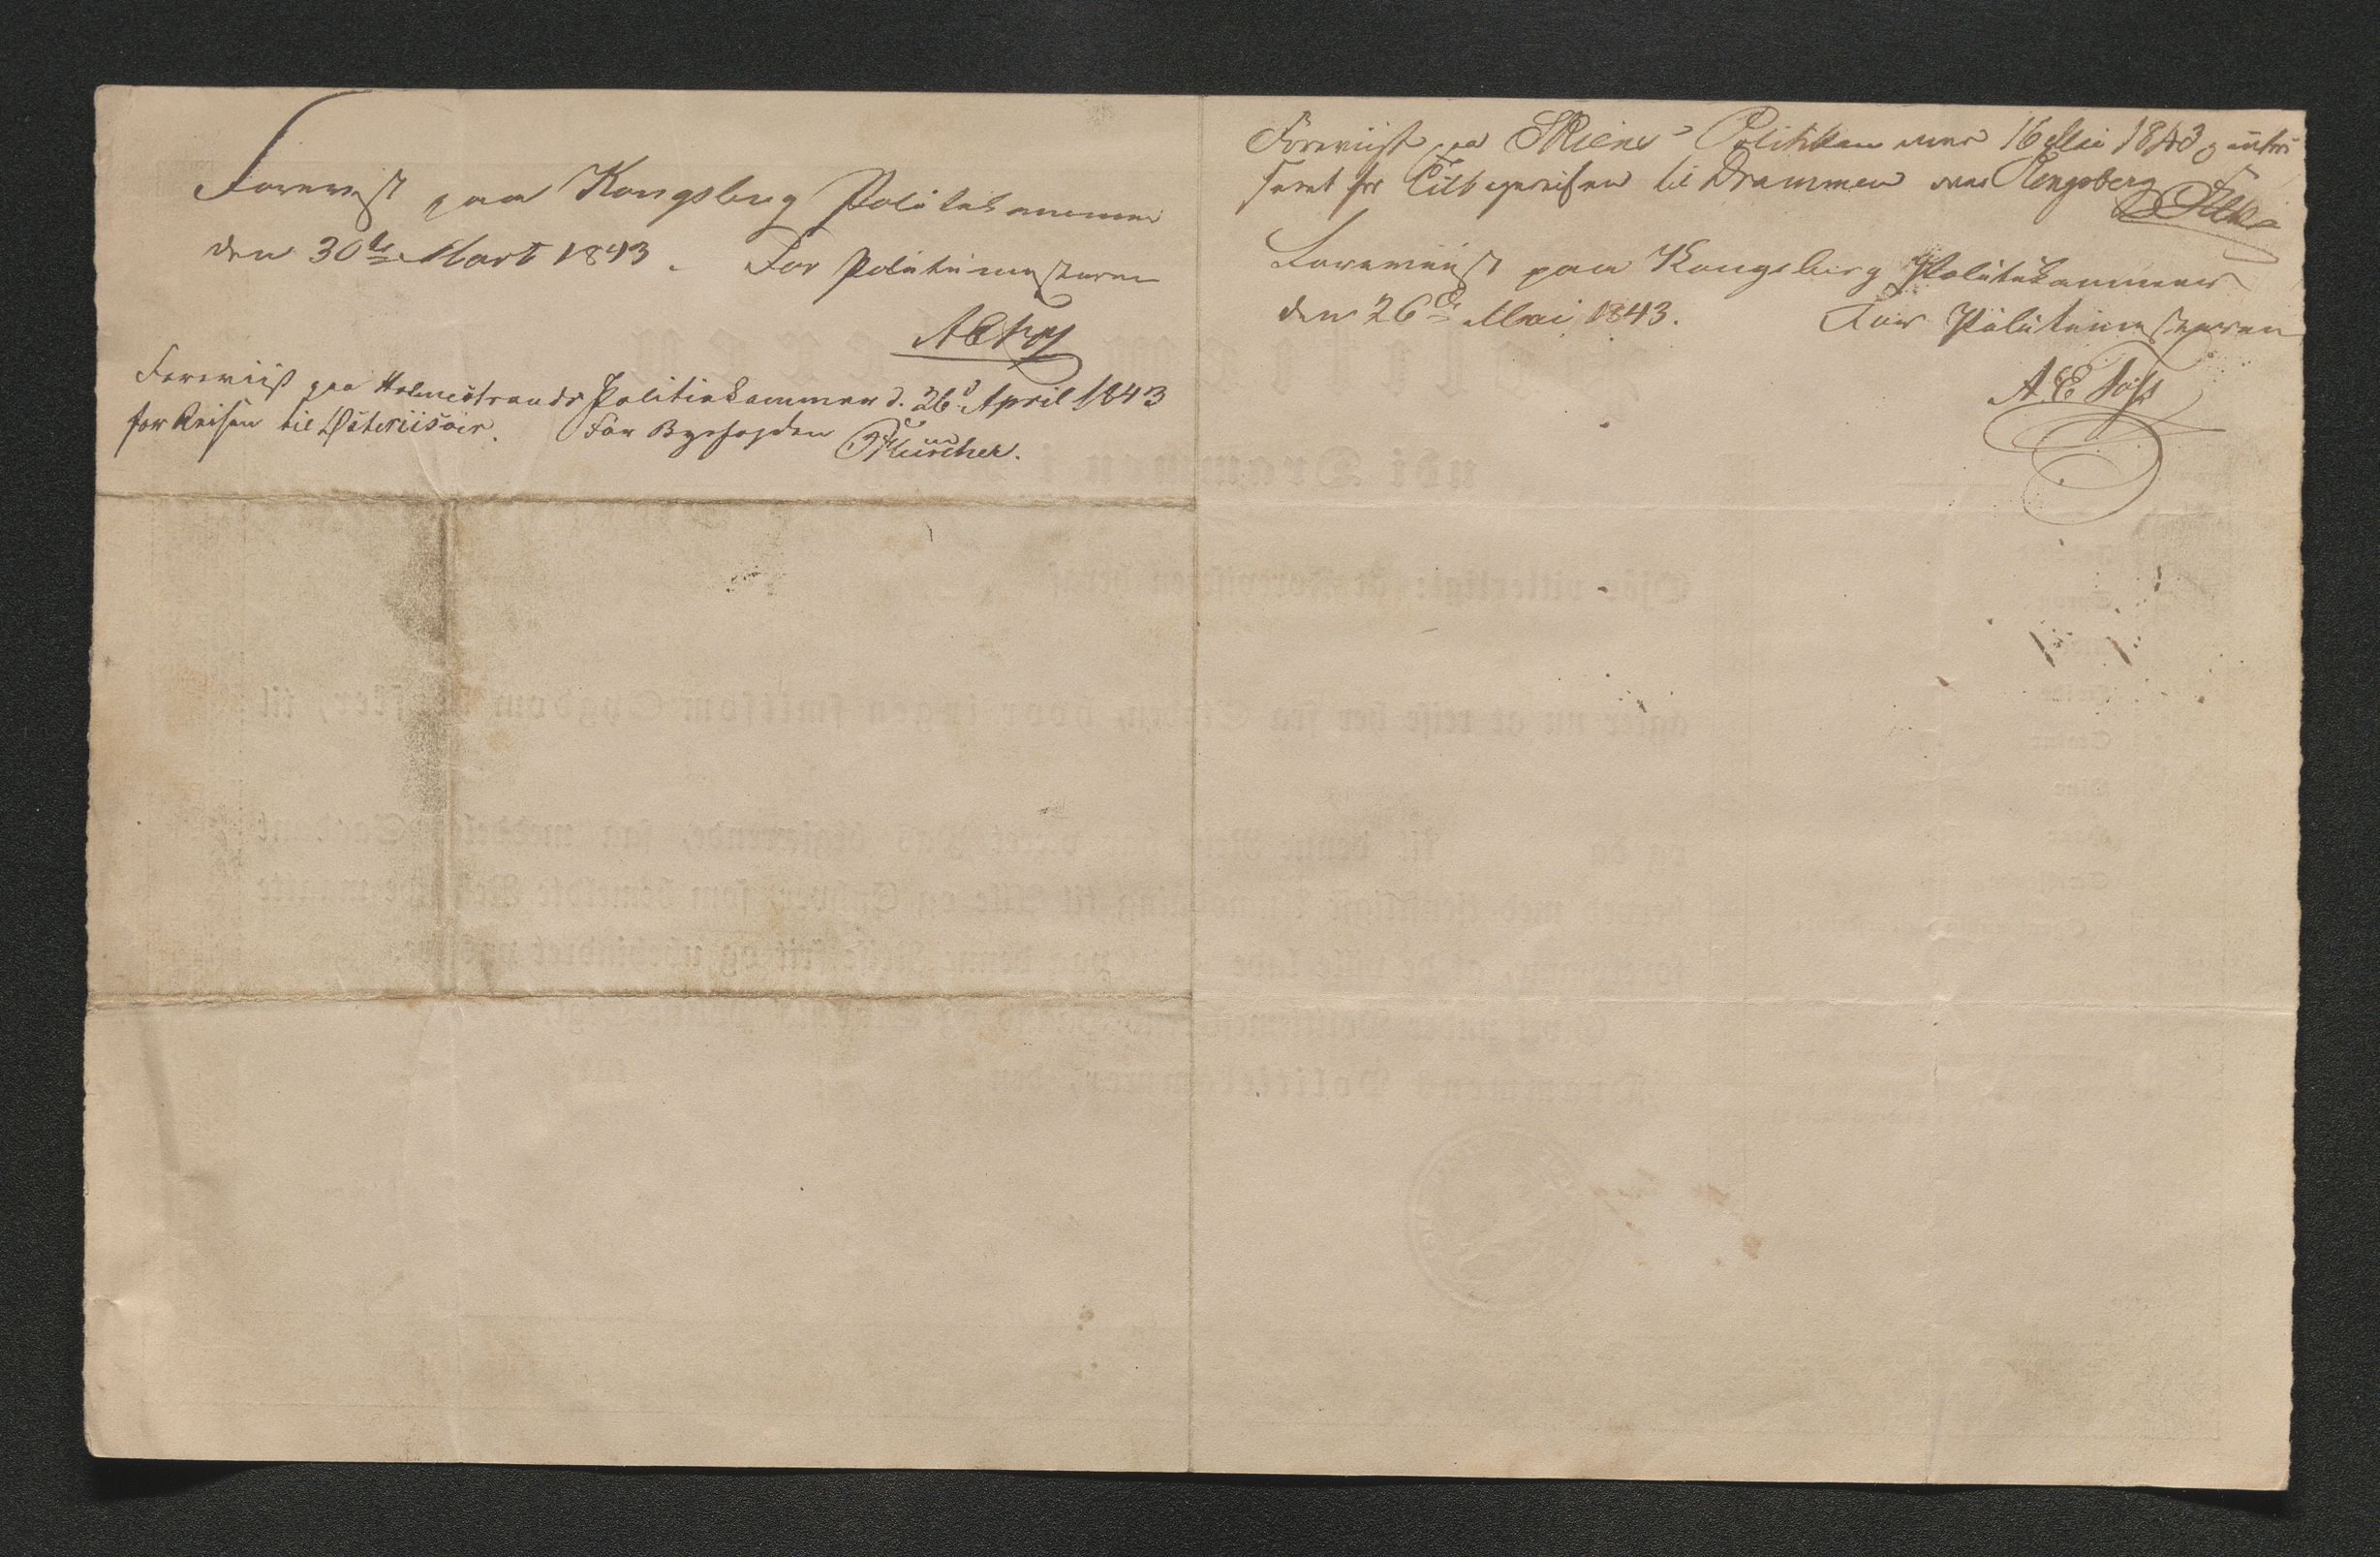 Foreviist paa Kongsberg Politiekammer
den 30te Mart 1843. For Politiemesteren
Foreviist paa Holmestrands Politiekammer d. 26d April 1843
for Reisen til Østeriisøer. For Byefogden
Foreviist paa Skiens Politikammer 16 Mai 1843
samt for Tilbagereisen til Drammen over Kongsberg
Foreviist paa Kongsberg Politiekammer
den 26de Mai 1843. For Politiemesteren
A. E.